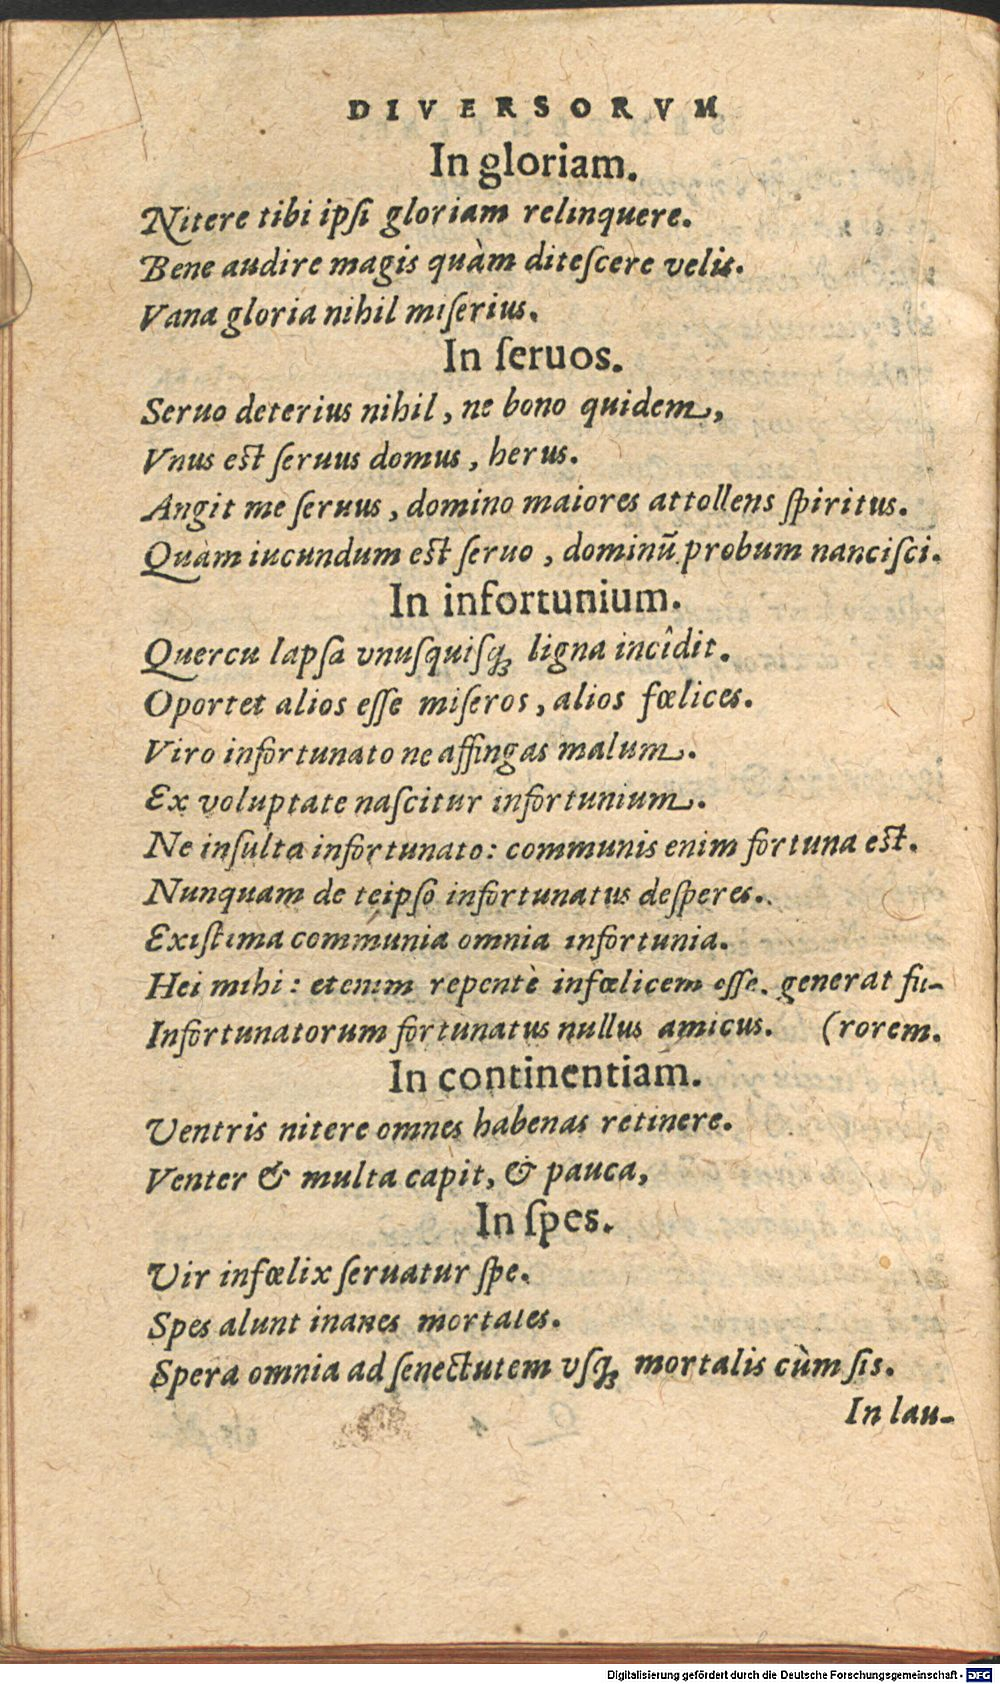 DIVERSORVM
In gloriam.
Nitere tibi ipſi gloriam relinquere.
Bene audire magis quàm diteſcere velis.
Vana gloria nihil miſerius.
In ſeruos.
Seruo deterius nihil, ne bono quidem,
Vnus est ſeruus domus, herus.
Angit me ſeruus, domino maiores attollens ſpiritus.
Quàm iucundum est ſeruo, dominũ probum nanciſci.
In infortunium.
Quercu lapſa vnuſquiſq; ligna incîdit.
Oportet alios eſſe miſeros, alios fœlices.
Viro infortunato ne affingas malum.
Ex voluptate naſcitur infortunium.
Ne inſulta infortunato: communis enim fortuna est.
Nunquam de teipſo infortunatus deſperes.
Exiſtima communia omnia infortunia.
Hei mihi: etenim repentè infœlicem eſſe. generat fu-
Infortunatorum fortunatus nullus amicus. (rorem.
In continentiam.
Ventris nitere omnes habenas retinere.
Venter & multa capit, & pauca,
In ſpes.
Vir infœlix ſeruatur ſpe.
Spes alunt inanes mortales.
Spera omnia ad ſenectutem vſq; mortalis cùm ſis.
In lau-
Digitalisierung gefördert durch die Deutsche Forschungsgemeinschaft - DFG